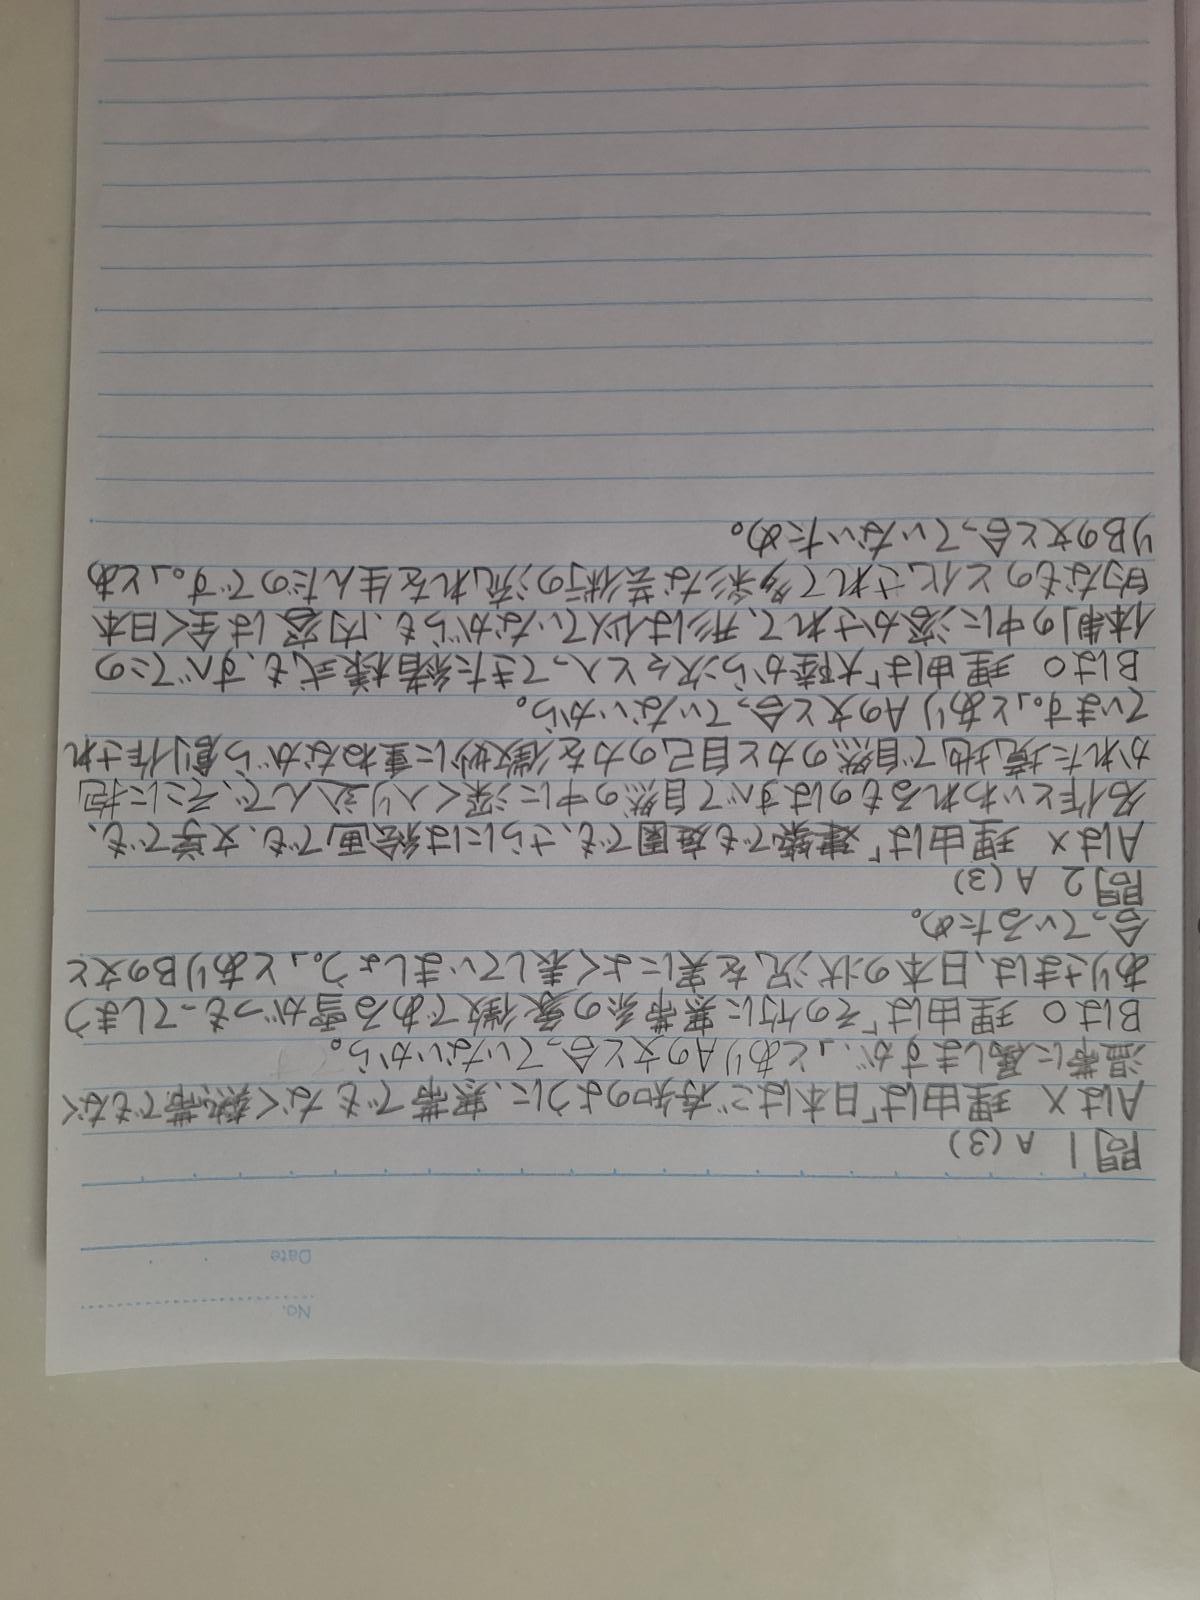 No.
Date
問1 A (3)
Aは× 理由は「日本はご存知のように、寒帯でもなく熱帯でもなく
温帯に属しますが、」とありAの文と合っていないから。
Bは○ 理由は「その竹に寒帯系の象徴である雪がつもってしまう
ありさまは、日本の状況を実によく表していましょう。」とありBの文と
合っているため。
問2 A (3)
Aは× 理由は「建築でも庭園でも、さらには絵画でも、文学でも、
名作といわれるものはすべて自然の中に深く入り込んで、そこに抱
かれた境地で自然の力と自己の力を微妙に重ねながら創作され
ています。」とありAの文と合っていないから。
Bは○ 理由は「大陸から次々と入ってきた諸様式も、すべてこの
体制の中に溶かされて、形は似ていながらも、内容は全く日本
的なものと化されて多彩な芸術の流れを生んだのです。」とあ
りBの文と合っていないため。